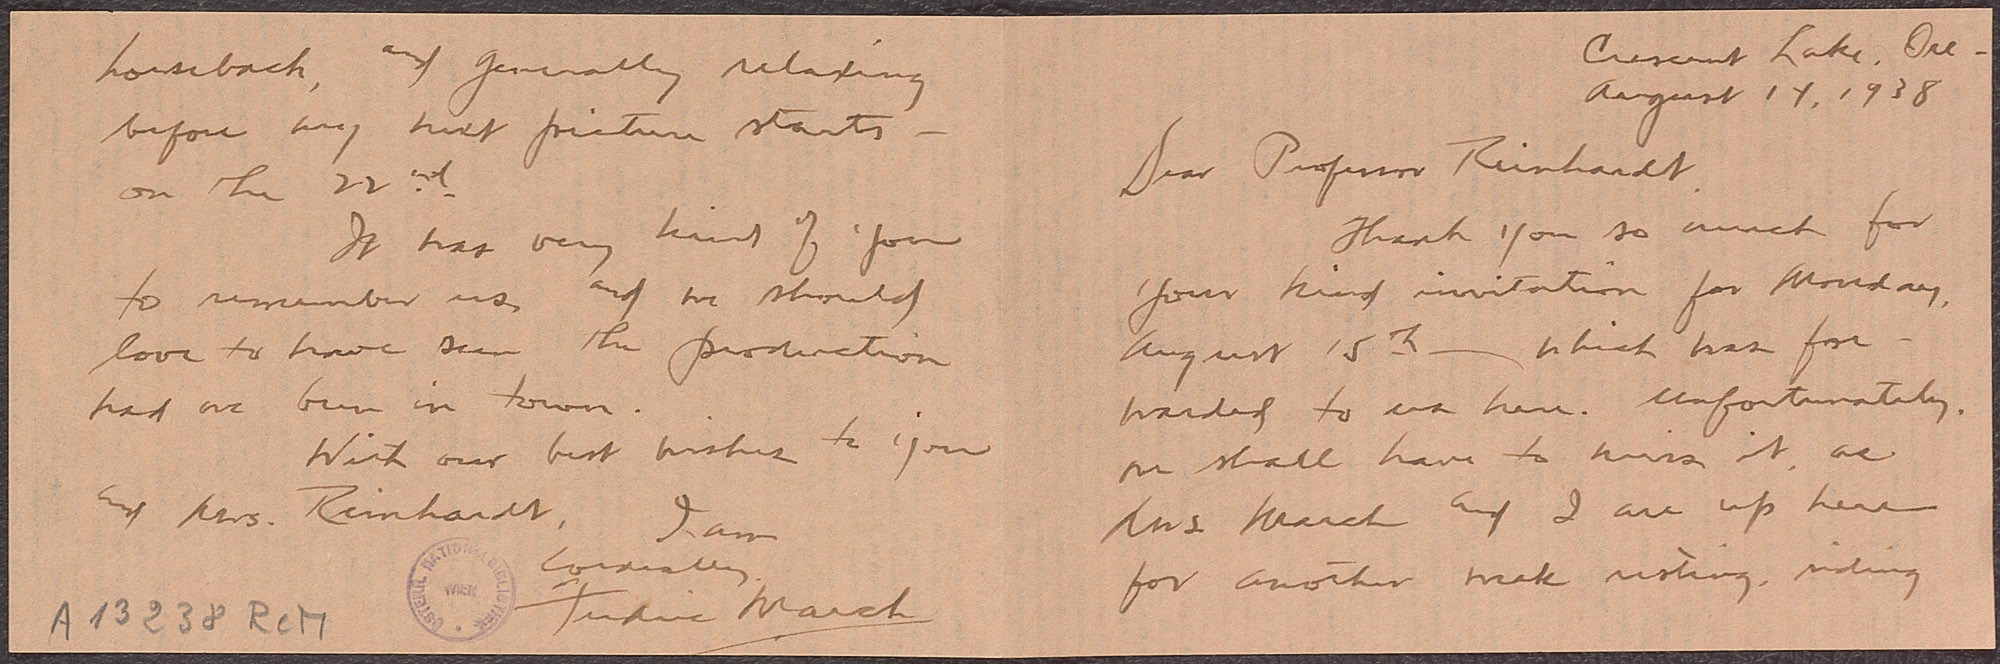 Crescent Lake, Ore -
August 14, 1938
Dear Professor Reinhardt,
Thank you so much for
your kind invitation for Monday,
August 15th — which was for-
warded to us here. Unfortunately,
we shall have to miss it, as
Mrs March and I are up here
for another week resting, riding
horseback, and generally relaxing
before my next picture starts -
on the 22nd.
It was very kind of you
to remember us, and we should
love to have seen the production
had we been in town.
With our best wishes to you
and Mrs. Reinhardt,
I am
Cordially,
Fredric March
A 13238 ReM
ÖSTERR. NATIONALBIBLIOTHEK
WIEN